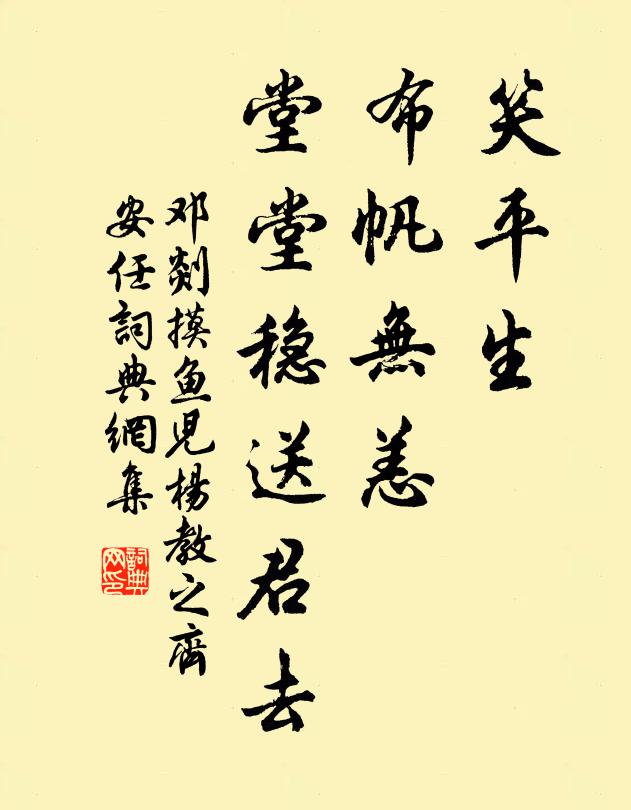 笑平生
布帆無恙
堂堂穏送君去
邓剡摸鱼児楊教之齊
安任詞典網集
詞典
网印